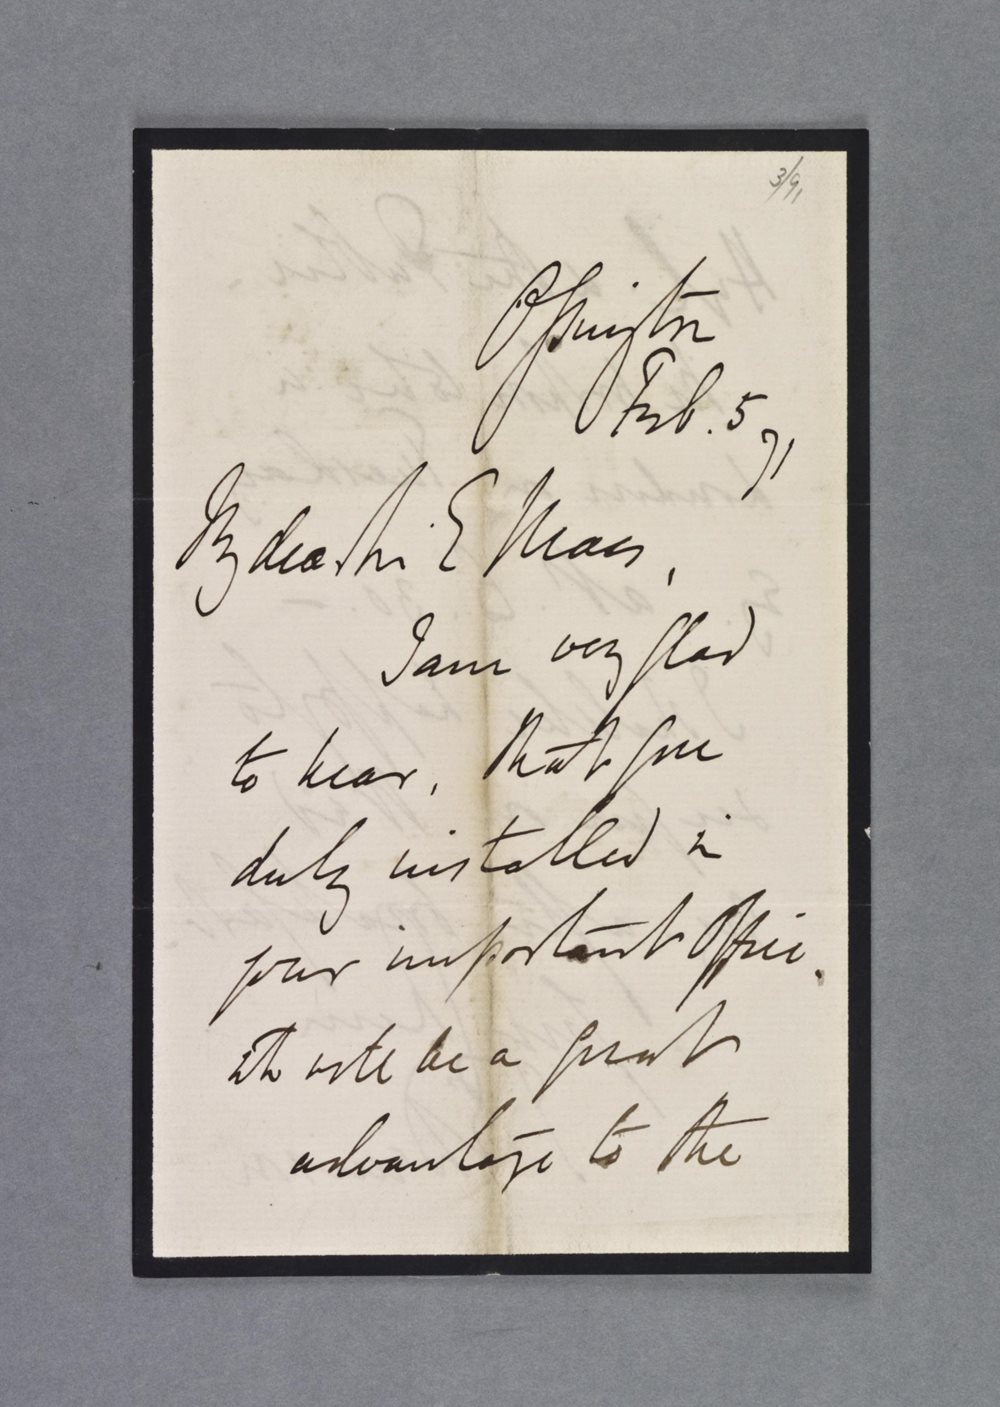 3/91
Ossington
Feb. 5
71
My dear Sir E May,
I am very glad
to hear, that you
duly installed in
your important Office.
It will be a great
advantage to the